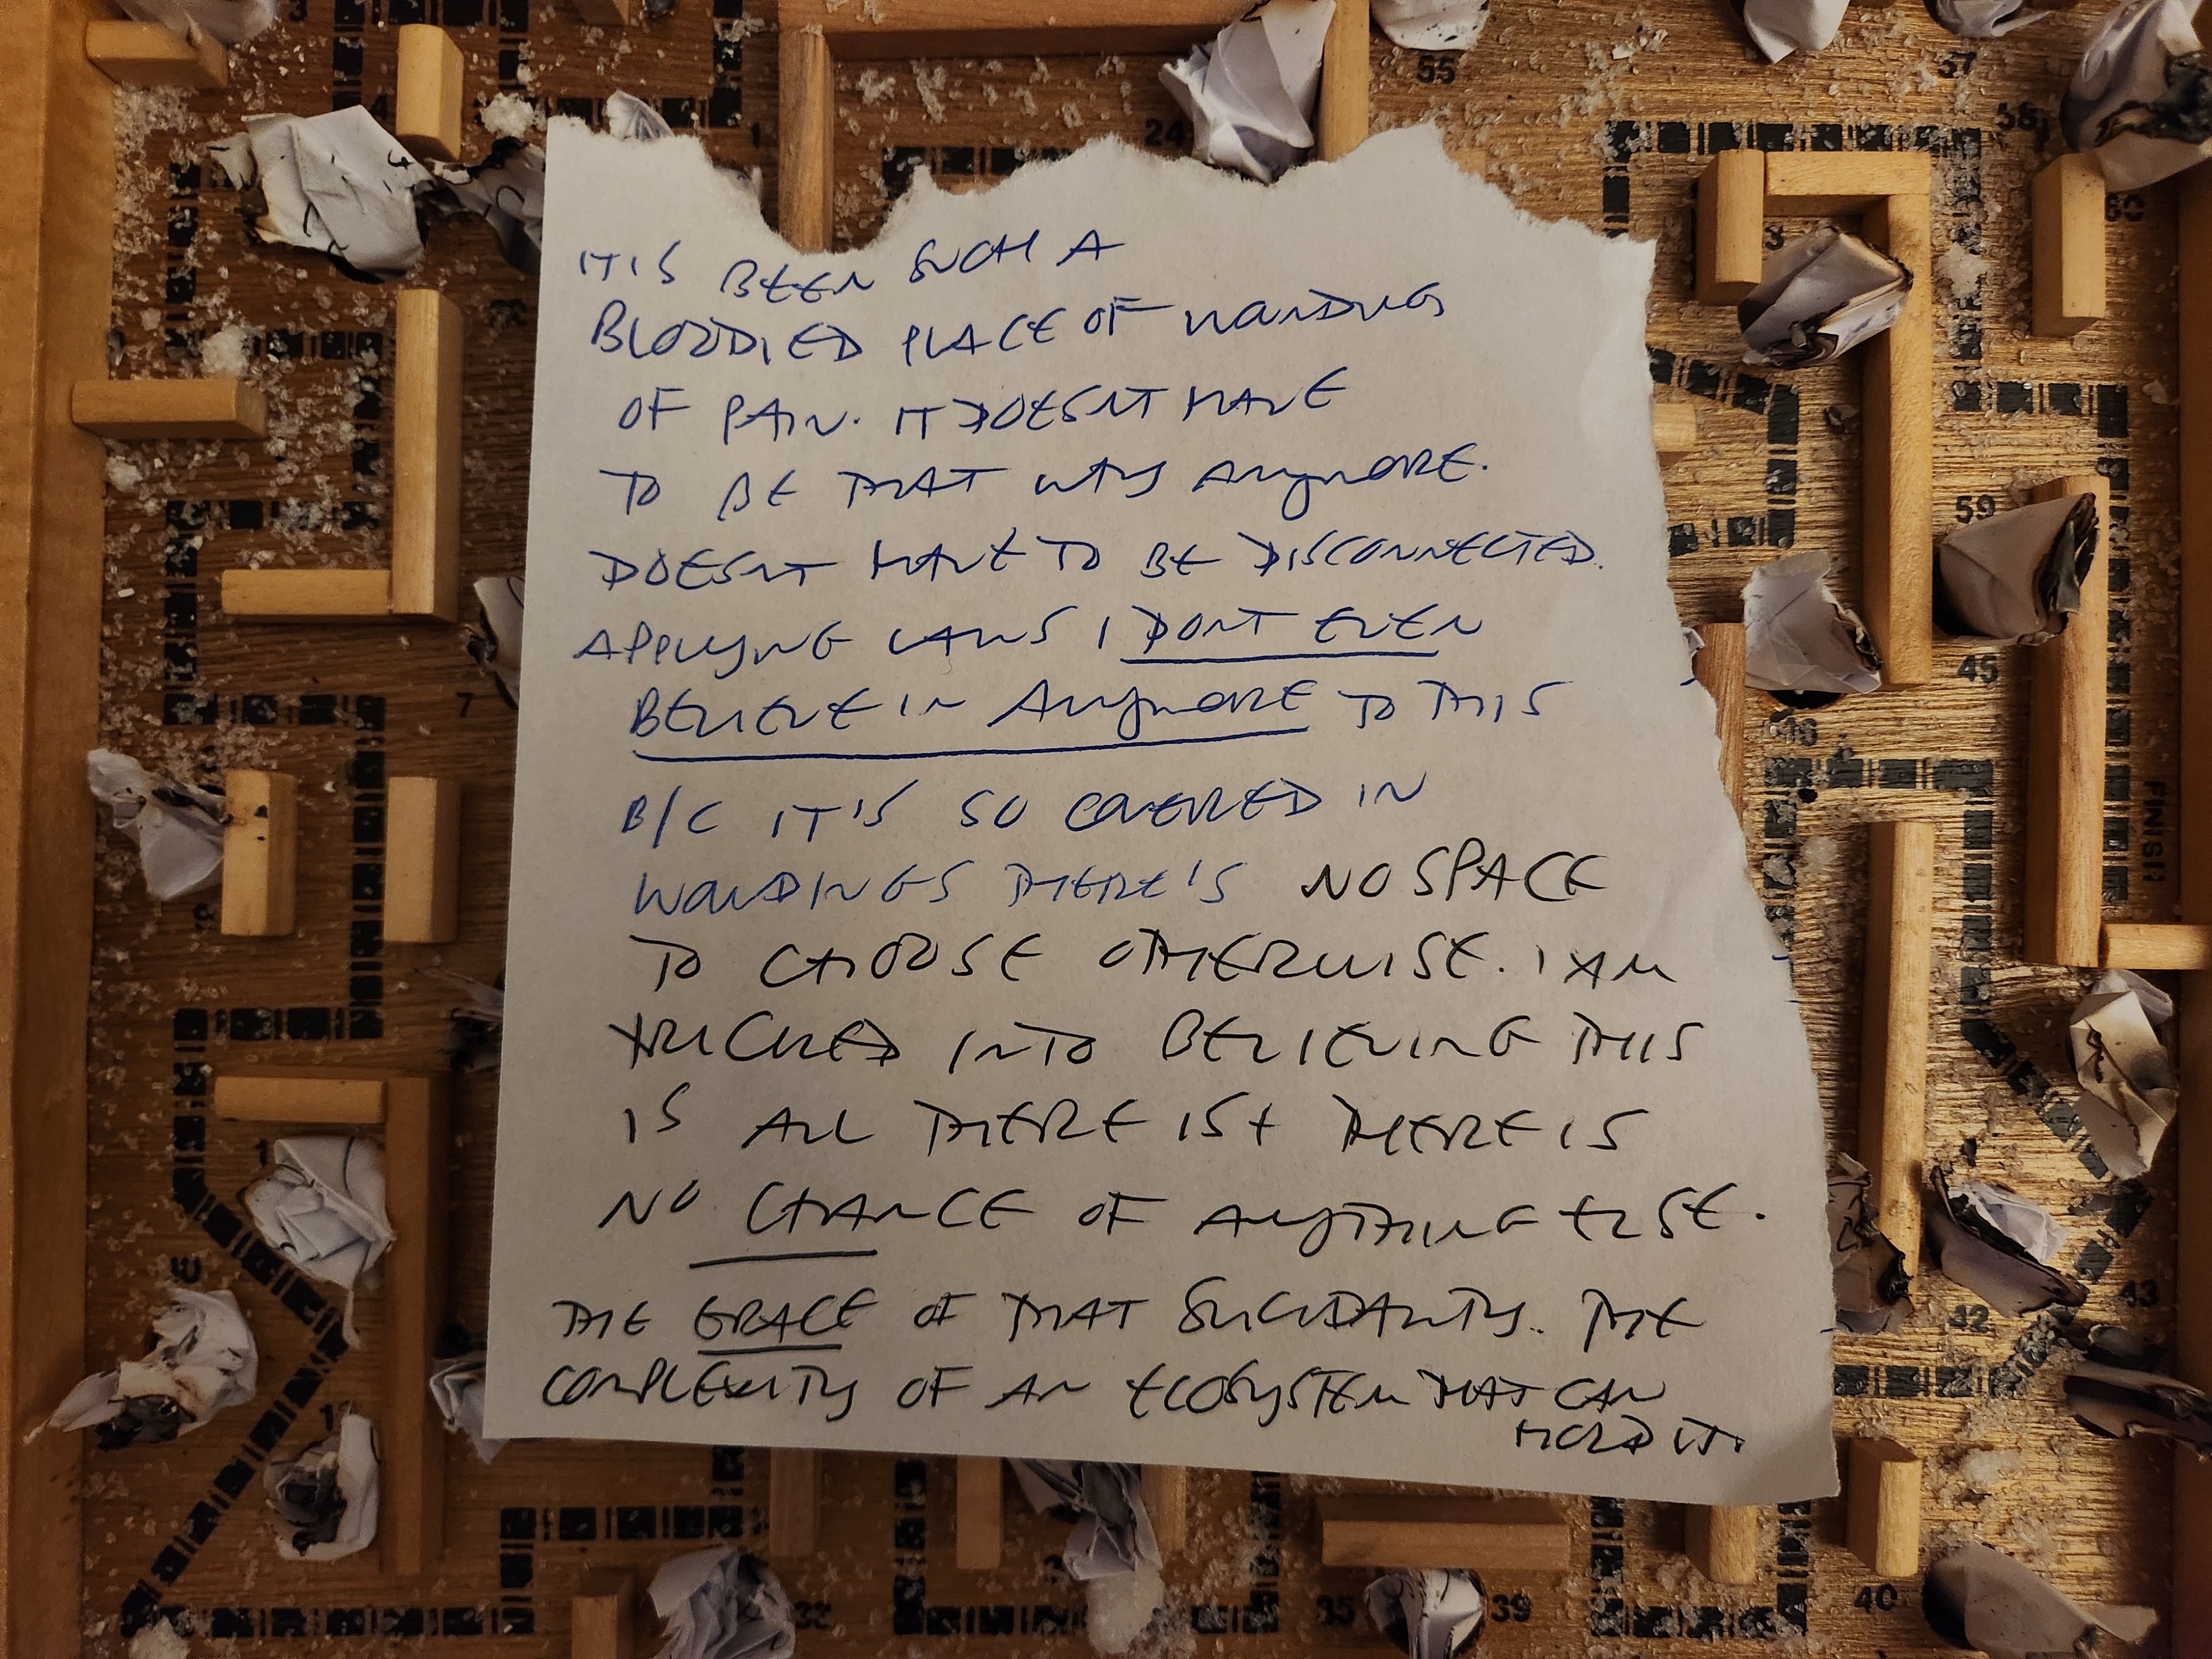 IT'S BEEN SUCH A
BLOODIED PLACE OF WOUNDING
OF PAIN. IT DOESNT HAVE
TO BE THAT WAY ANYMORE.
DOESNT HAVE TO BE DISCONNECTED.
APPLYING LAWS I DONT EVEN
BELIEVE IN ANYMORE TO THIS
B/C IT'S SO COVERED IN
WOUNDINGS THERE'S NO SPACE
TO CHOOSE OTHERWISE. I AM
TRICKED INTO BELIEVING THIS
IS ALL THERE IS + THERE IS
NO CHANCE OF ANYTHING ELSE.
THE GRACE OF THAT SUICIDALITY. THE
COMPLEXITY OF AN ECOSYSTEM THAT CAN
HOLD IT.
55
57
24
58
60
59
45
7
FINISH
43
42
40
39
35
32